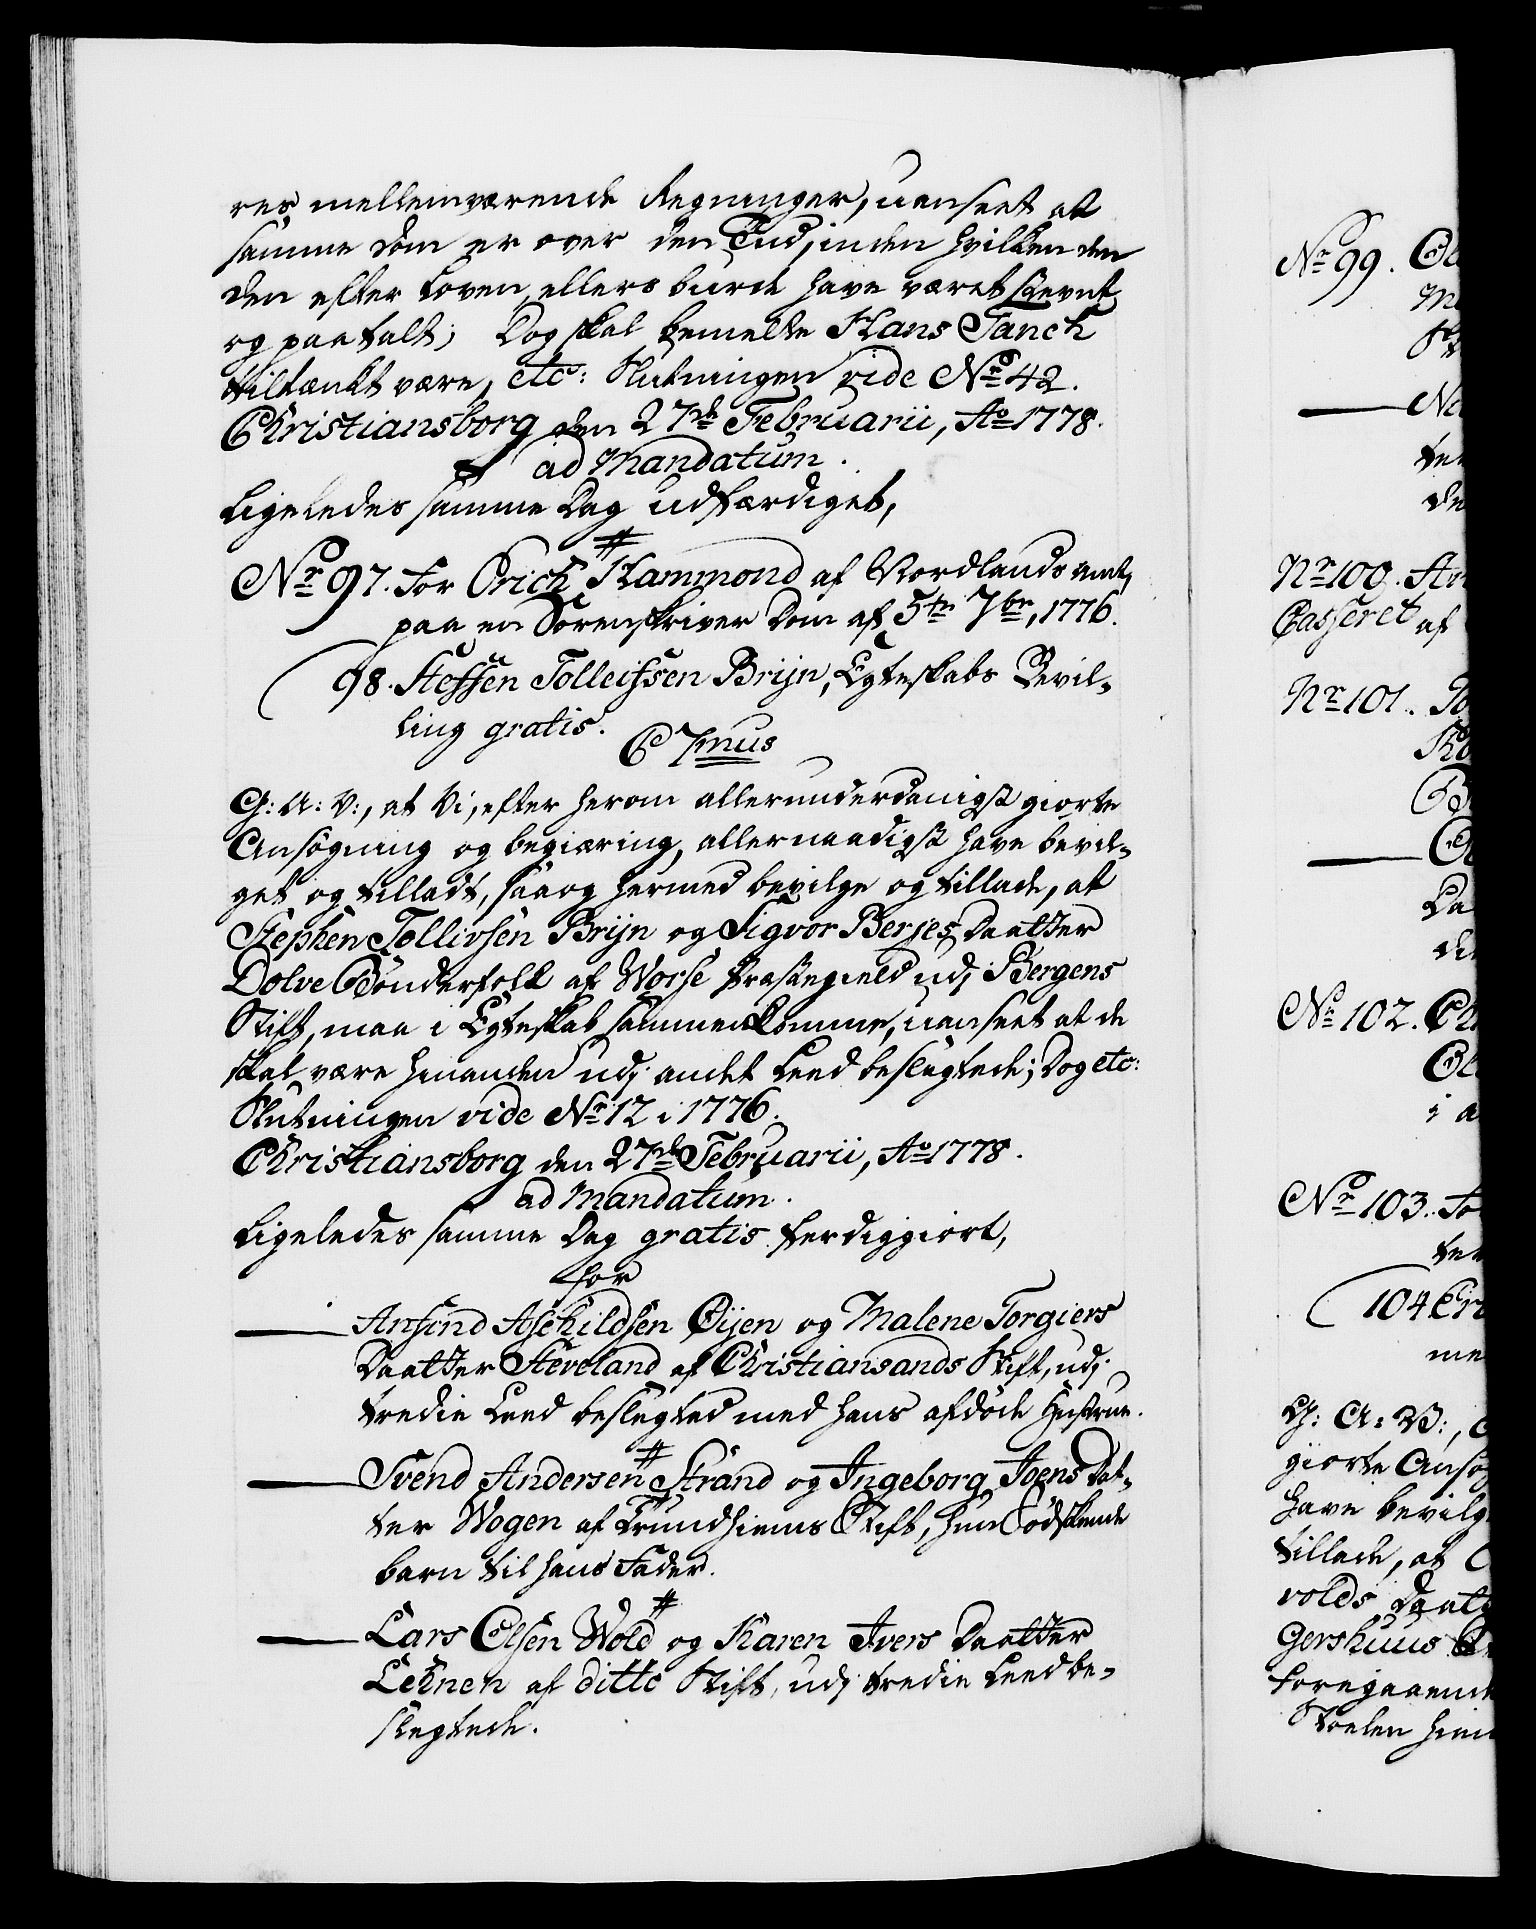 res mellemværende Regninger, uanseet at
samme Dom er over den Tid, inden hvilken den
den efter Loven ellers burde have været stevnt
og paatalt; Dog skal bemelte Hans Tanch
tiltænkt være, etc: Slutningen vide No 42.
Christiansborg den 27de Februarii, Ao 1778.
ad Mandatum.
Ligeledes samme Dag udfærdiget,
Nr 97. For Erich Hammond af Nordlands Amt,
paa en Sorenskriver Dom af 5te 7br, 1776.
98. Steffen Tolleifsen Brijn, Egteskabs Bevil-
ling gratis.
C 7mus
G: A: V:, at Vi, efter herom allerunderdanigst giorte
Ansøgning og begiæring, allernaadigst have bevil-
get og tilladt, saa og hermed bevilge og tillade, at
Stephen Tollivsen Brijn og Sigvor Berjes Daatter
Dolve Bønderfolk af Worse Præstegield udj Bergens
Stift, maa i Egteskab sammenkomme, uanseet at de
skal være hinanden udj andet Leed beslegtede; Dog etc:
Slutningen vide Nr 12 i 1776.
Christiansborg den 27de Februarii, Ao 1778.
ad Mandatum.
Ligeledes samme Dag gratis ferdiggiort,
for
Ansind Aschildsen Øijen og Malene Torgiers
Daatter Steveland af Christiansands Stift, udj
tredie Leed beslegted med hans afdøde Hustrue.
Svend Andersen Strand og Ingeborg Joens Dat-
ter Wogen af Trundhiems Stift, hun Sødskende
barn til hans Fader.
Lars Olsen Wold og Karen Ivers Daatter
Lehnen af ditto Stift, udj tredie Leed be-
slegtede.
Nr 99.
Nr 100.
Casseret af
Nr 101.
No 102.
No 103.
104
G: A: V:,
giorte Ansøg
have bevilg
tillade, at
volds Daat
foregaaende